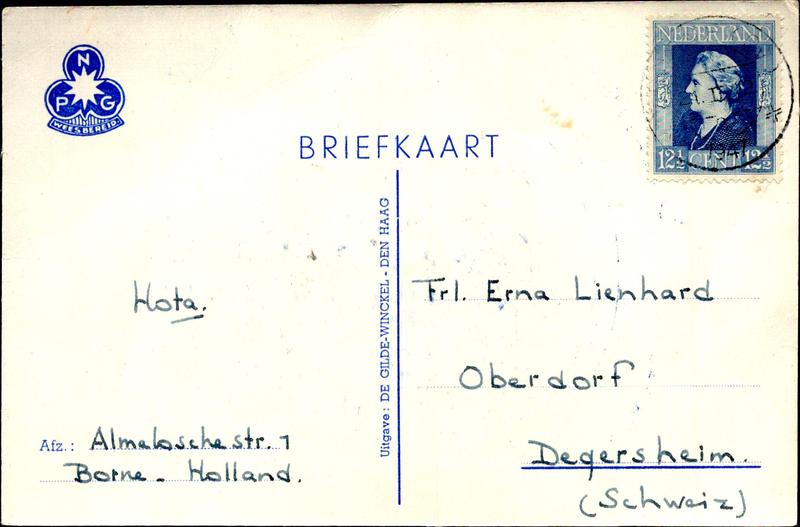 N
P G
WEES BEREID
NEDERLAND
12½ CENT 12½
1947
BRIEFKAART
Uitgave: DE GILDE-WINCKEL - DEN HAAG
Hota.
Frl. Erna Lienhard
Oberdorf
Degersheim.
(Schweiz)
Afz.: Almeloschestr. 1
Borne - Holland.